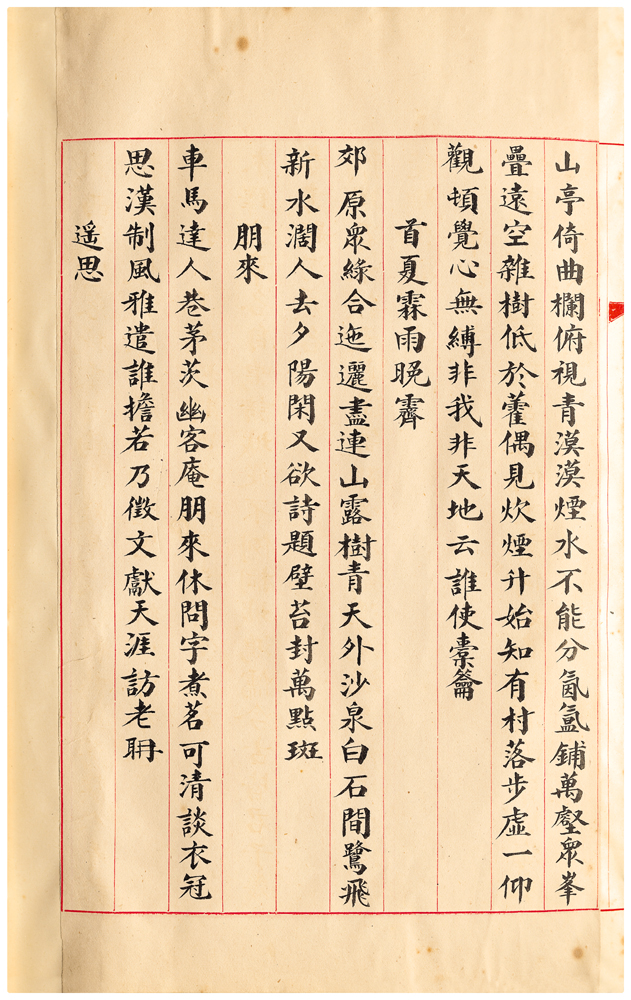 山亭倚曲欄俯視青漠漠煙水不能分氤氳鋪萬壑眾峯
疊遠空雜樹低於藿偶見炊煙升始知有村落步虛一仰
觀頓覺心無縛非我非天地云誰使橐籥
首夏霖雨晚霽
郊原眾綠合迤邐盡連山露樹青天外沙泉白石間鷺飛
新水濶人去夕陽閑又欲詩題壁苔封萬點斑
朋來
車馬達人巷茅茨幽客庵朋來休問字煮茗可清談衣冠
思漢制風雅遣誰擔若乃徵文獻天涯訪老聃
遥思